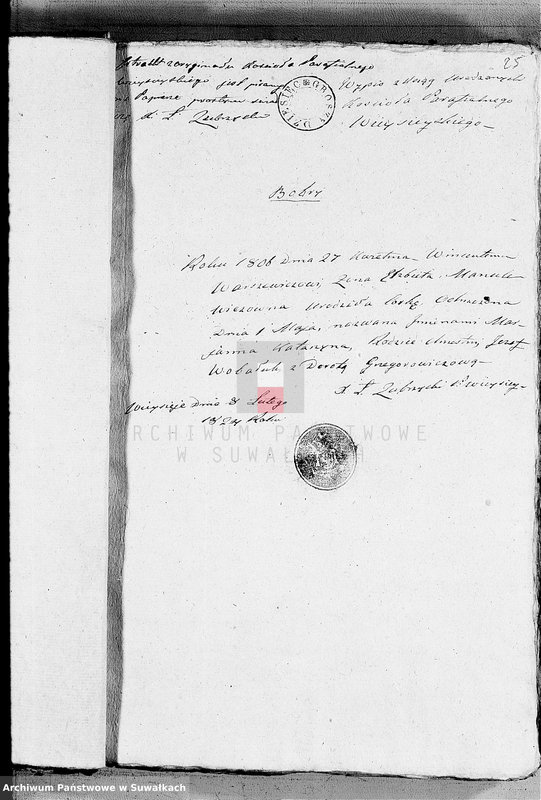 25
z oryginału Kościoła Parafialnego
jest pisany
na Papierze
X. Ż. Zubrzycki
DZIESIĘĆ GROSZY
Wypis z Xiąg urodzonych
Kościoła Parafialnego
Wieyszeyskiego
Bobry
Roku 1806 Dnia 27 Kwietnia Wincentemu
Warszewiczowi, Żona Elżbieta Mancle
wiczowna Urodziła Corkę, Ochrzczona
Dnia 1 Maja, nazwana Imionami Mar-
janna Katarzyna, Rodzice chrzestni, Jozef
Wobaluk z Dorotą Gregorowiczową
X. Ż. Zubrzycki
Dnia 8 Lutego
1824 Roku
ARCHIWUM PAŃSTWOWE
W SUWAŁKACH
Archiwum Państwowe w Suwałkach